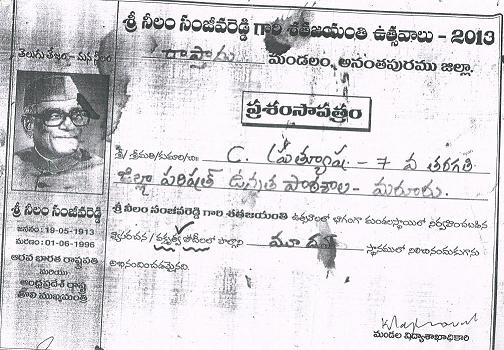 శ్రీ నీలం సంజీవరెడ్డి గారి శతజయంతి ఉత్సవాలు - 2013
రాప్తాడు మండలం, అనంతపురము జిల్లా.
ప్రశంసాపత్రం
శ్రీ/శ్రీమతి/కుమారి/చి॥ C. ప్రత్యూష - 7 వ తరగతి
జిల్లా పరిషత్ ఉన్నత పాఠశాల - మరూరు.
శ్రీ నీలం సంజీవరెడ్డి గారి శతజయంతి ఉత్సవాలలో భాగంగా మండలస్థాయిలో నిర్వహించబడిన
వ్యాసరచన/వక్తృత్వ పోటీలలో పాల్గొని మూడవ స్థానములో నిలిచినందుకుగాను
అభినందించడమైనది.
మండల విద్యాశాఖాధికారి
తెలుగు తేజం -
శ్రీ నీలం సంజీవరెడ్డి
జననం: 19-05-1913
మరణం: 01-06-1996
ఆరవ భారత రాష్ట్రపతి
మరియు
ఆంధ్రప్రదేశ్ రాష్ట్ర
తొలి ముఖ్యమంత్రి